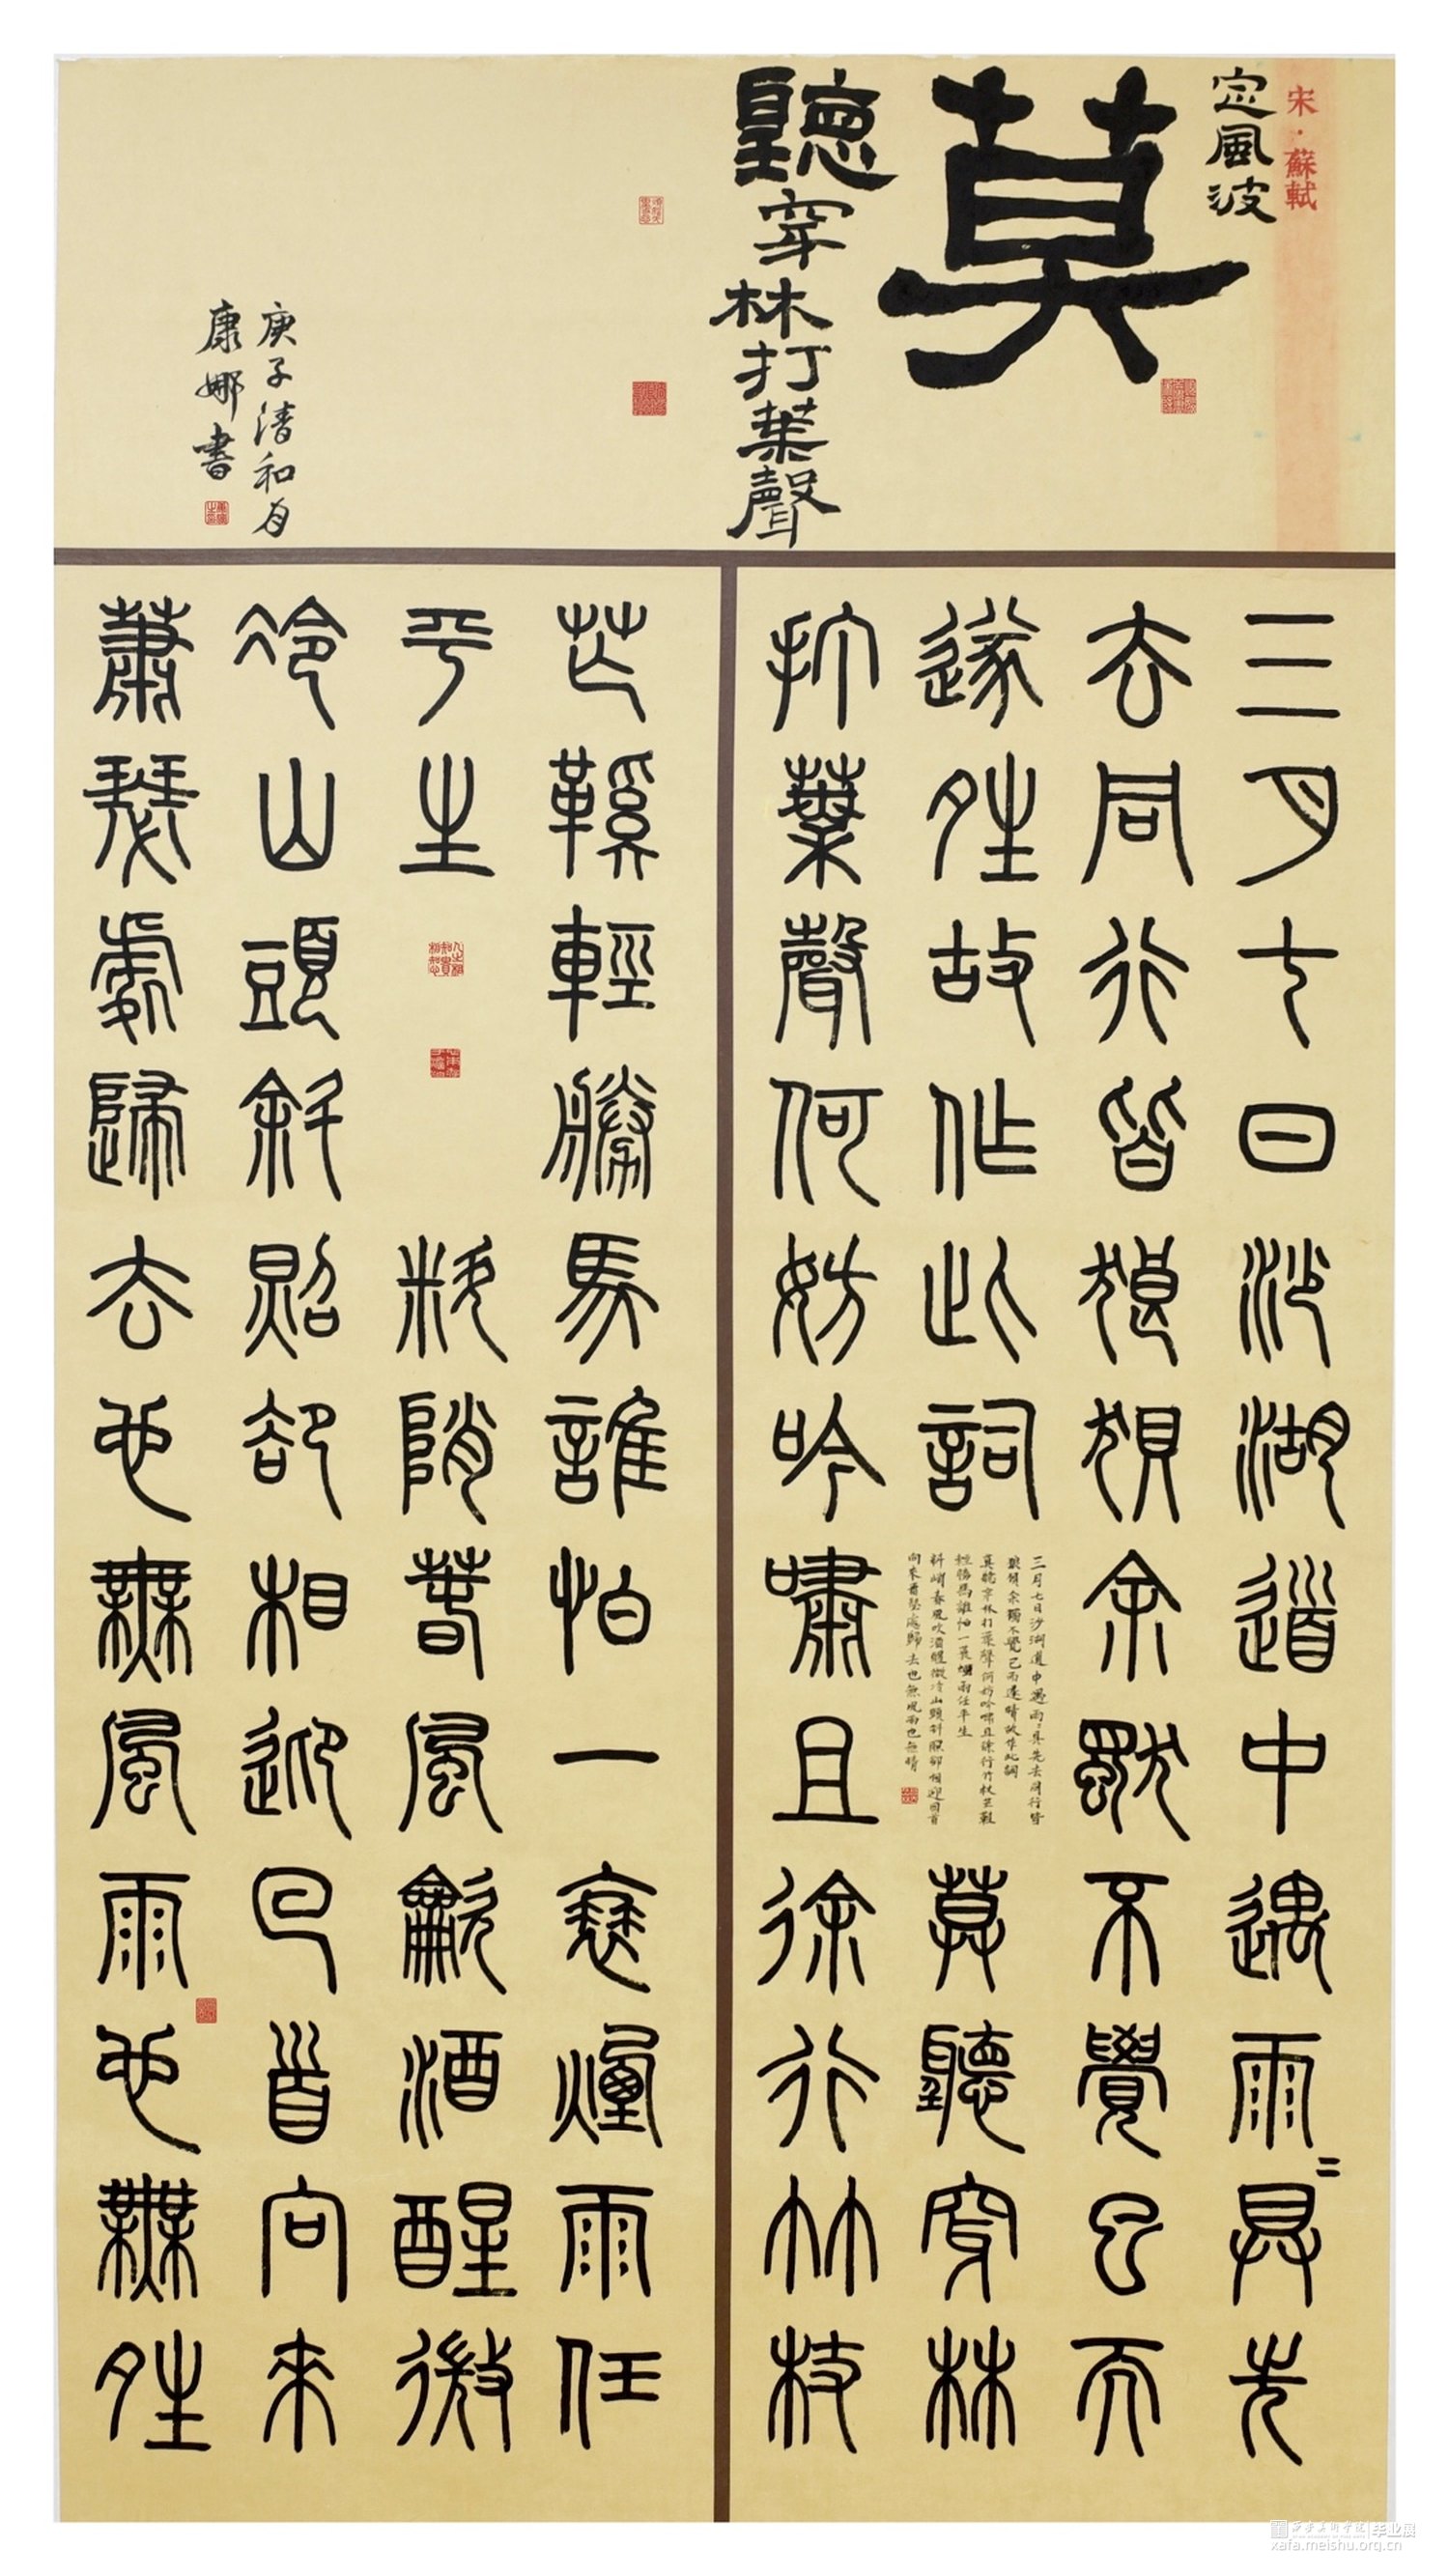 宋·蘇軾
定風波
莫
聽穿林打葉聲
庚子清和月
康娜書
三月七日沙湖道中遇雨=具先
去同行皆狼狽余獨不覺已而
遂姓故作此詞
莫聽穿林
打葉聲何妨吟嘯且徐行竹杖
三月七日沙湖道中遇雨=具先去同行皆
狼狽余獨不覺已而遂晴故作此詞
莫聽穿林打葉聲何妨吟嘯且徐行竹杖芒鞋
輕勝馬誰怕一蓑煙雨任平生
料峭春風吹酒醒微冷山頭斜照卻相迎回首
向來蕭瑟處歸去也無風雨也無晴
芒鞵輕勝馬誰怕一蓑煙雨任
平生
料峭春風龡酒醒微
冷山頭斜照卻相迎回首向來
蕭瑟處歸去也無風雨也無姓
西安美術學院 毕业展
xafa.meishu.org.cn